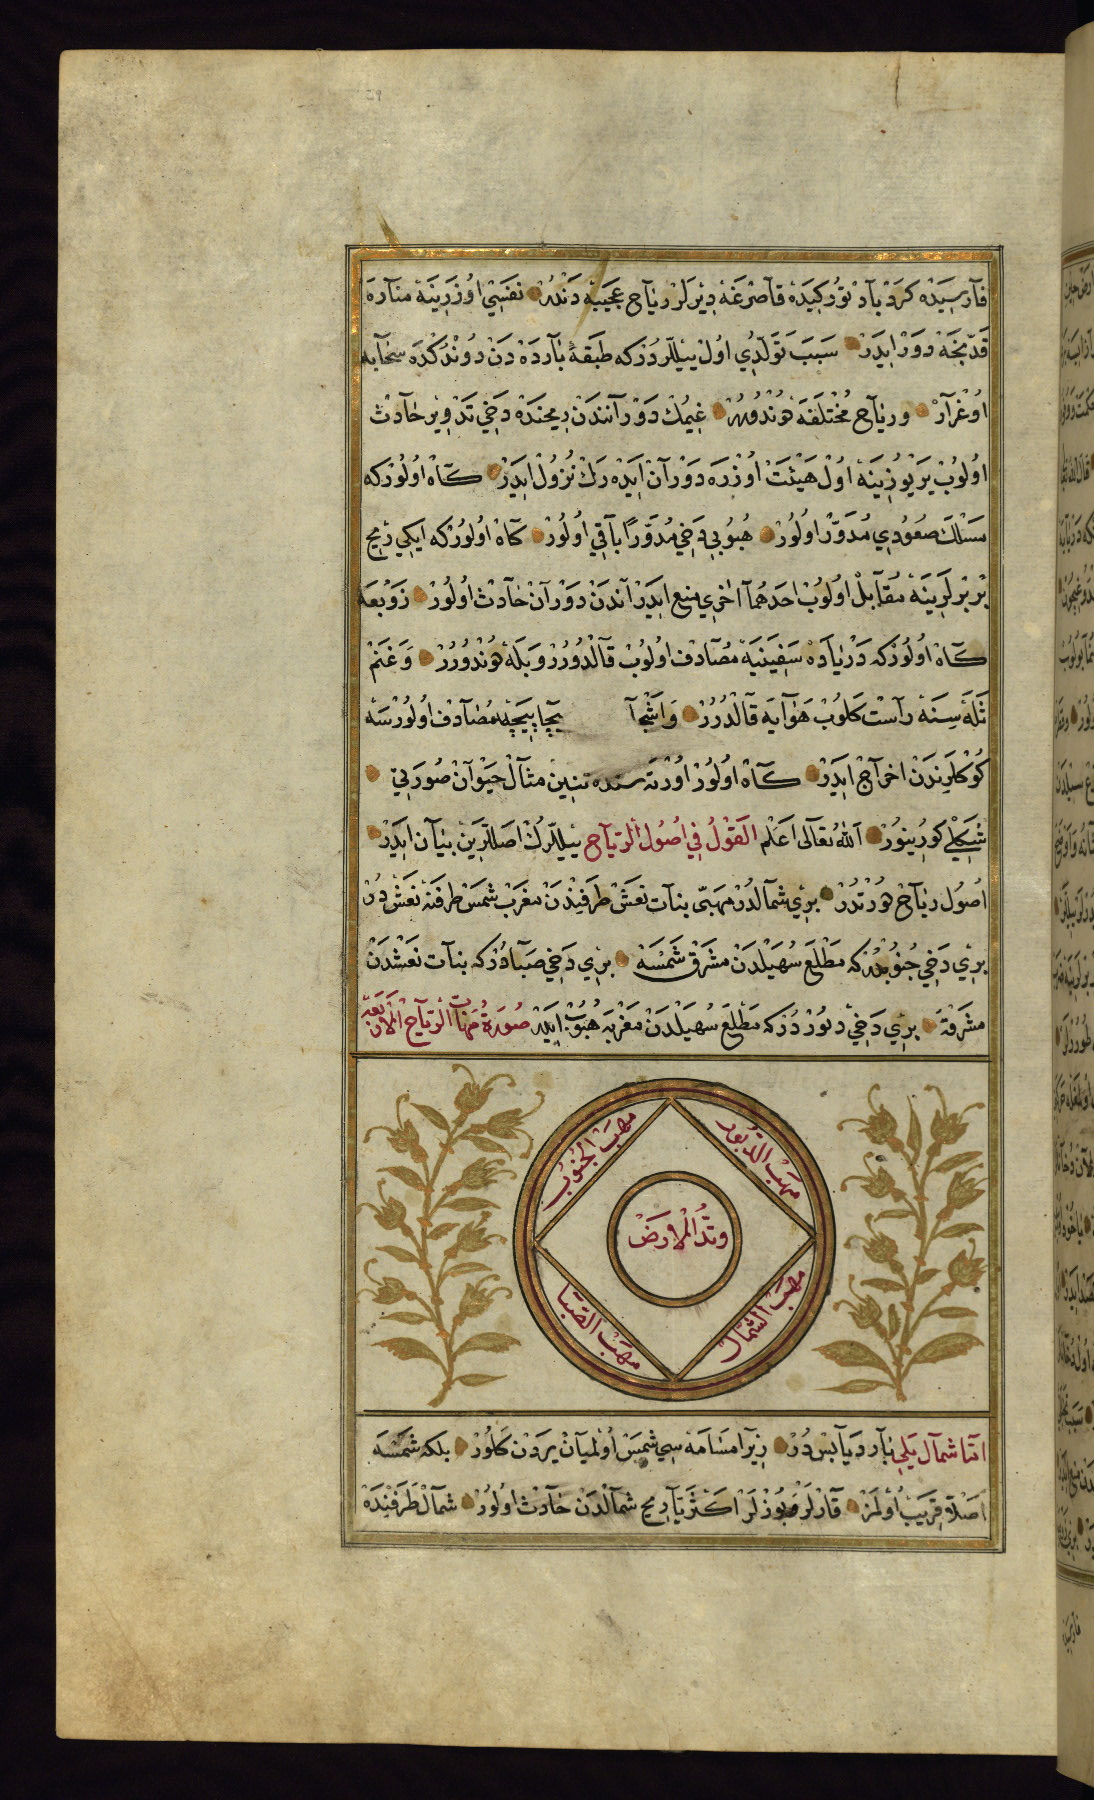 فارسیده کردباد تورکیده قاصرغه دیرلر ریاح عجیبه دندر نفسی اوزرینه مناره
قدّیجه دور ایدر سبب تولّدی اول ییللردرکه طبقهٔ بارده دن دوندکده سحابه
اوغرار و ریاح مختلفه هوندوررلر غیمک دورانندن ریحنده دخی تدویر حادث
اولوب یر یوزینه اول هیئت اوزره دوران ایده رك نزول ایدر کاه اولورکه
مسلك صعودی مدوّر اولور هبوبی دخی مدوّرا باقی اولور کاه اولورکه ایکی ریح
بربرلرینه مقابل اولوب احدهما اخری منع ایدر آندن دوران حادث اولور زوبعه
کاه اولورکه دریاده سفینیه مصادف اولوب قالدورر و بله هوندورر و غنم
ثله سنه راست کلوب هوایه قالدرر و اشجا بیچاپیچه مصادف اولورسه
کوکلریندن اخراج ایدر کاه اولور اورته سنده تنین مثال حیوان صورتی
شکلی کورینور الله تعالی اعلم القول فی اصول الریاح ییللرك اصللرین بیان ایدر
اصول ریاح دورتدر بری شمالدر مهبّی بنات نعش طرفیندن مغرب شمس طرفنه نعش در
بری دخی جنوبدرکه مطلع سهیلدن مشرق شمسه بری دخی صبادرکه بنات نعشدن
مشرقه بری دخی دبوردرکه مطلع سهیلدن مغربه هبوب ایدر صورة مهبات الریاح الاربعه
مهب الجنوب
مهب الدبور
وتد الارض
مهب الصبا
مهب الشمال
امّا شمال یلی بارد یابسدر زیرا مسامه سی شمس اولمیان یردن کلور بلکه شمسه
اصلا قریب اولمز قارلر و بوزلر اکثریا ریح شمالدن حادث اولور شمال طرفنده